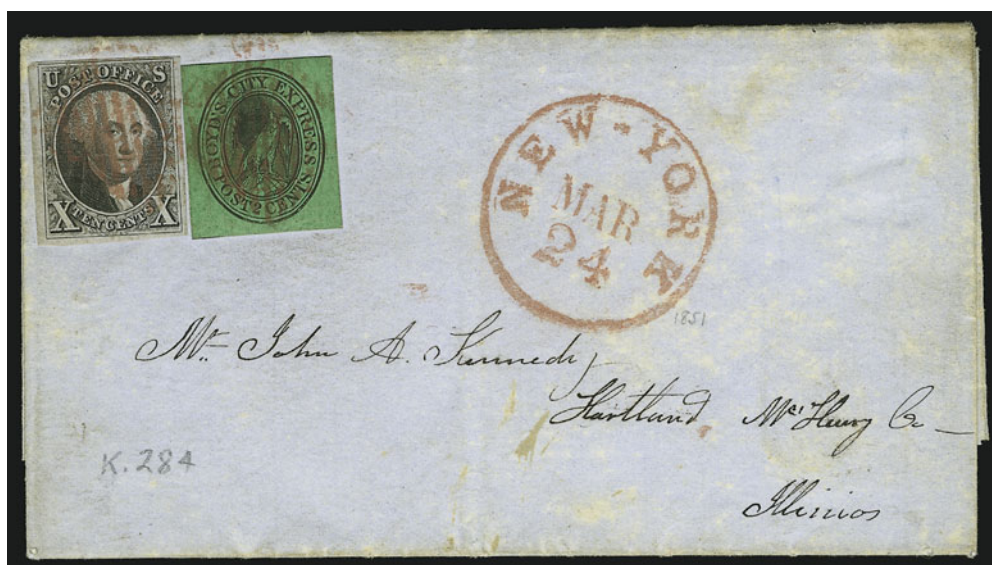 U S
POST OFFICE
X TEN CENTS X
BOYD'S CITY EXPRESS
POST 2 CENTS
NEW-YORK
MAR
24
1851
Mr. John A. Kennedy
Hartland Mc Henry Co
Illinios
K. 284